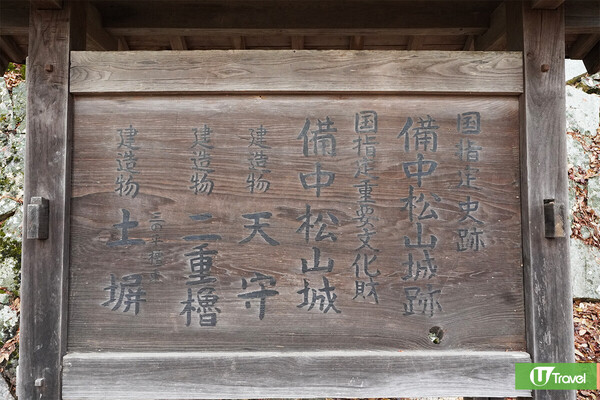 国指定史跡
備中松山城跡
国指定重要文化財
備中松山城
建造物 天守
建造物 二重櫓
建造物 土塀
U Travel